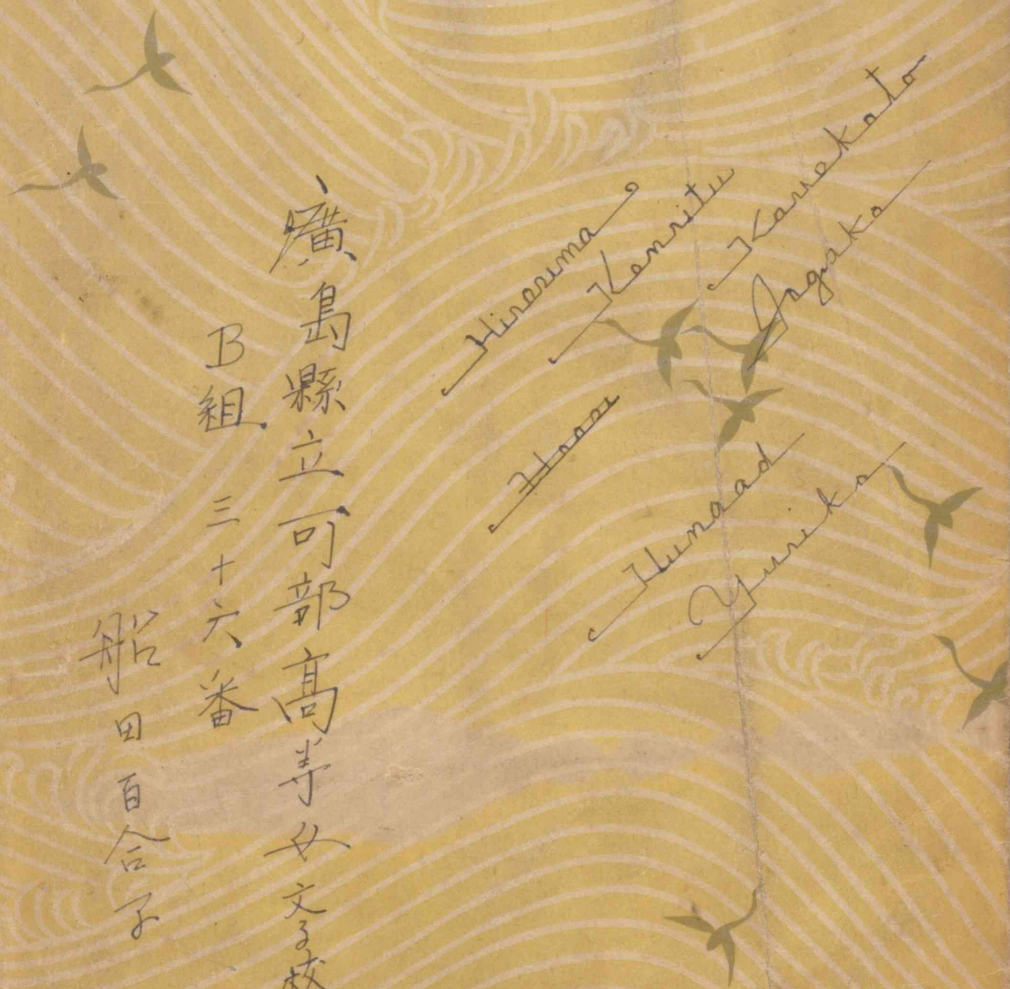 廣島縣立可部高等女学校
B組 三十六番
船田百合子
Hirosima
Kenritu
Kauekoto
Jogako
Hunaad
Yuriko